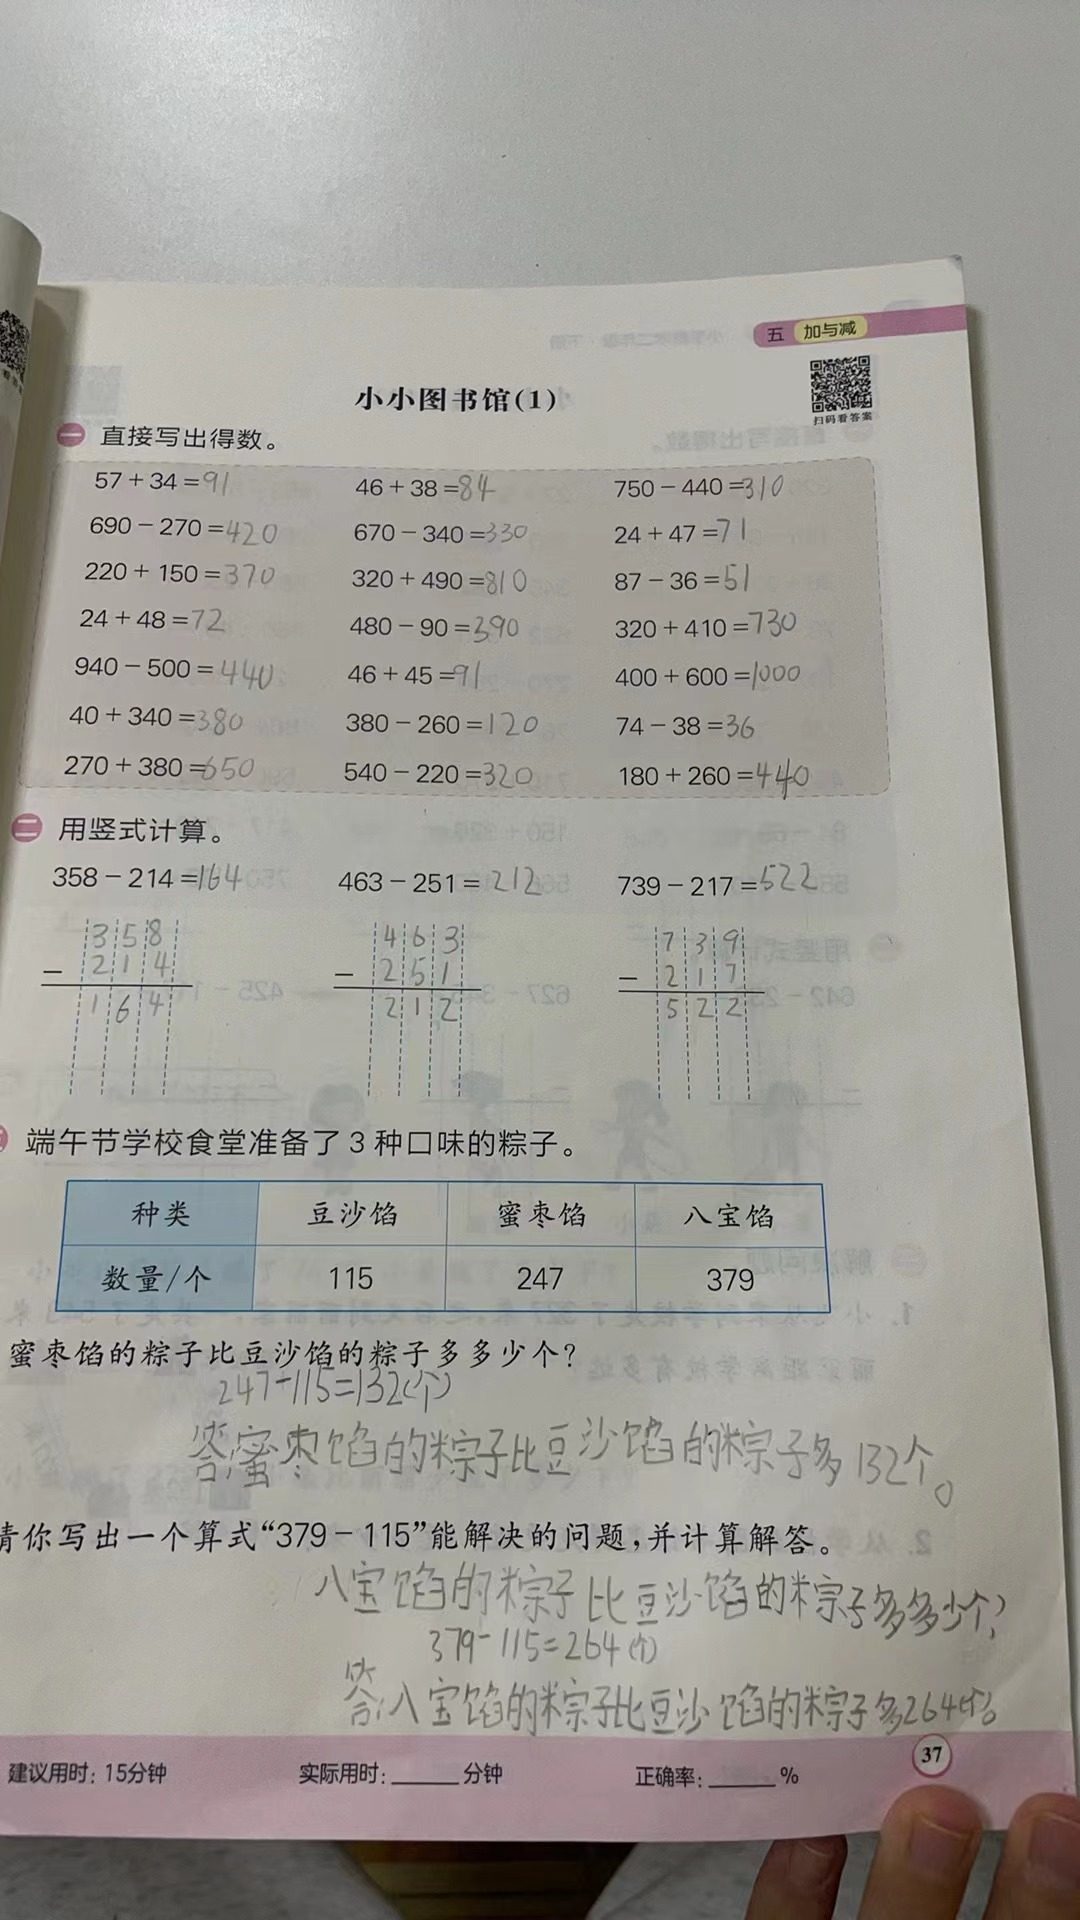 五 加与减
小小图书馆(1)
扫码看答案
一 直接写出得数。
57+34=91 46+38=84 750-440=310
690-270=420 670-340=330 24+47=71
220+150=370 320+490=810 87-36=51
24+48=72 480-90=390 320+410=730
940-500=440 46+45=91 400+600=1000
40+340=380 380-260=120 74-38=36
270+380=650 540-220=320 180+260=440
二 用竖式计算。
358-214=164 463-251=212 739-217=522
358 463 739
-214 -251 -217
164 212 522
端午节学校食堂准备了3种口味的粽子。
种类 豆沙馅 蜜枣馅 八宝馅
数量/个 115 247 379
蜜枣馅的粽子比豆沙馅的粽子多多少个?
247-115=132(个)
答:蜜枣馅的粽子比豆沙馅的粽子多132个。
请你写出一个算式“379-115”能解决的问题,并计算解答。
八宝馅的粽子比豆沙馅的粽子多多少个?
379-115=264(个)
答:八宝馅的粽子比豆沙馅的粽子多264个。
建议用时:15分钟 实际用时:______分钟 正确率:______%
37